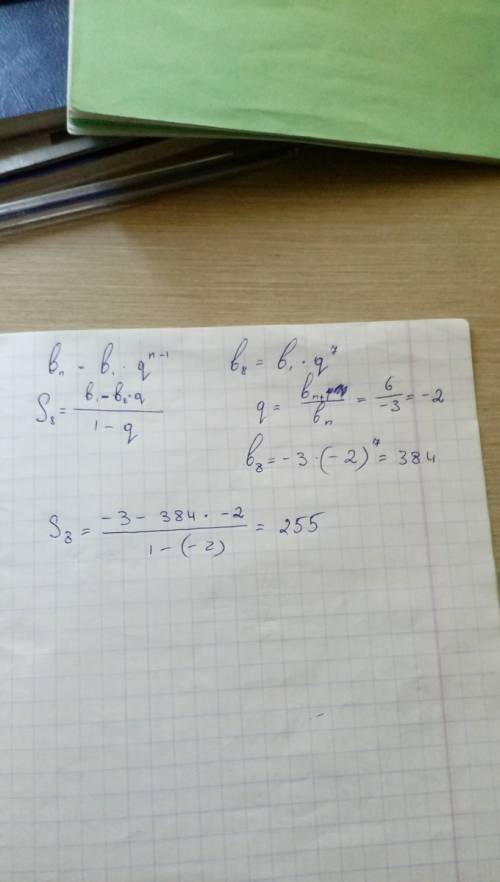 bₙ = b₁ · qⁿ⁻¹
b₈ = b₁ · q⁷
S₈ = (b₁ - b₈ · q) / (1 - q)
q = bₙ₊₁ / bₙ = 6 / -3 = -2
b₈ = -3 · (-2)⁷ = 384
S₈ = (-3 - 384 · -2) / (1 - (-2)) = 255